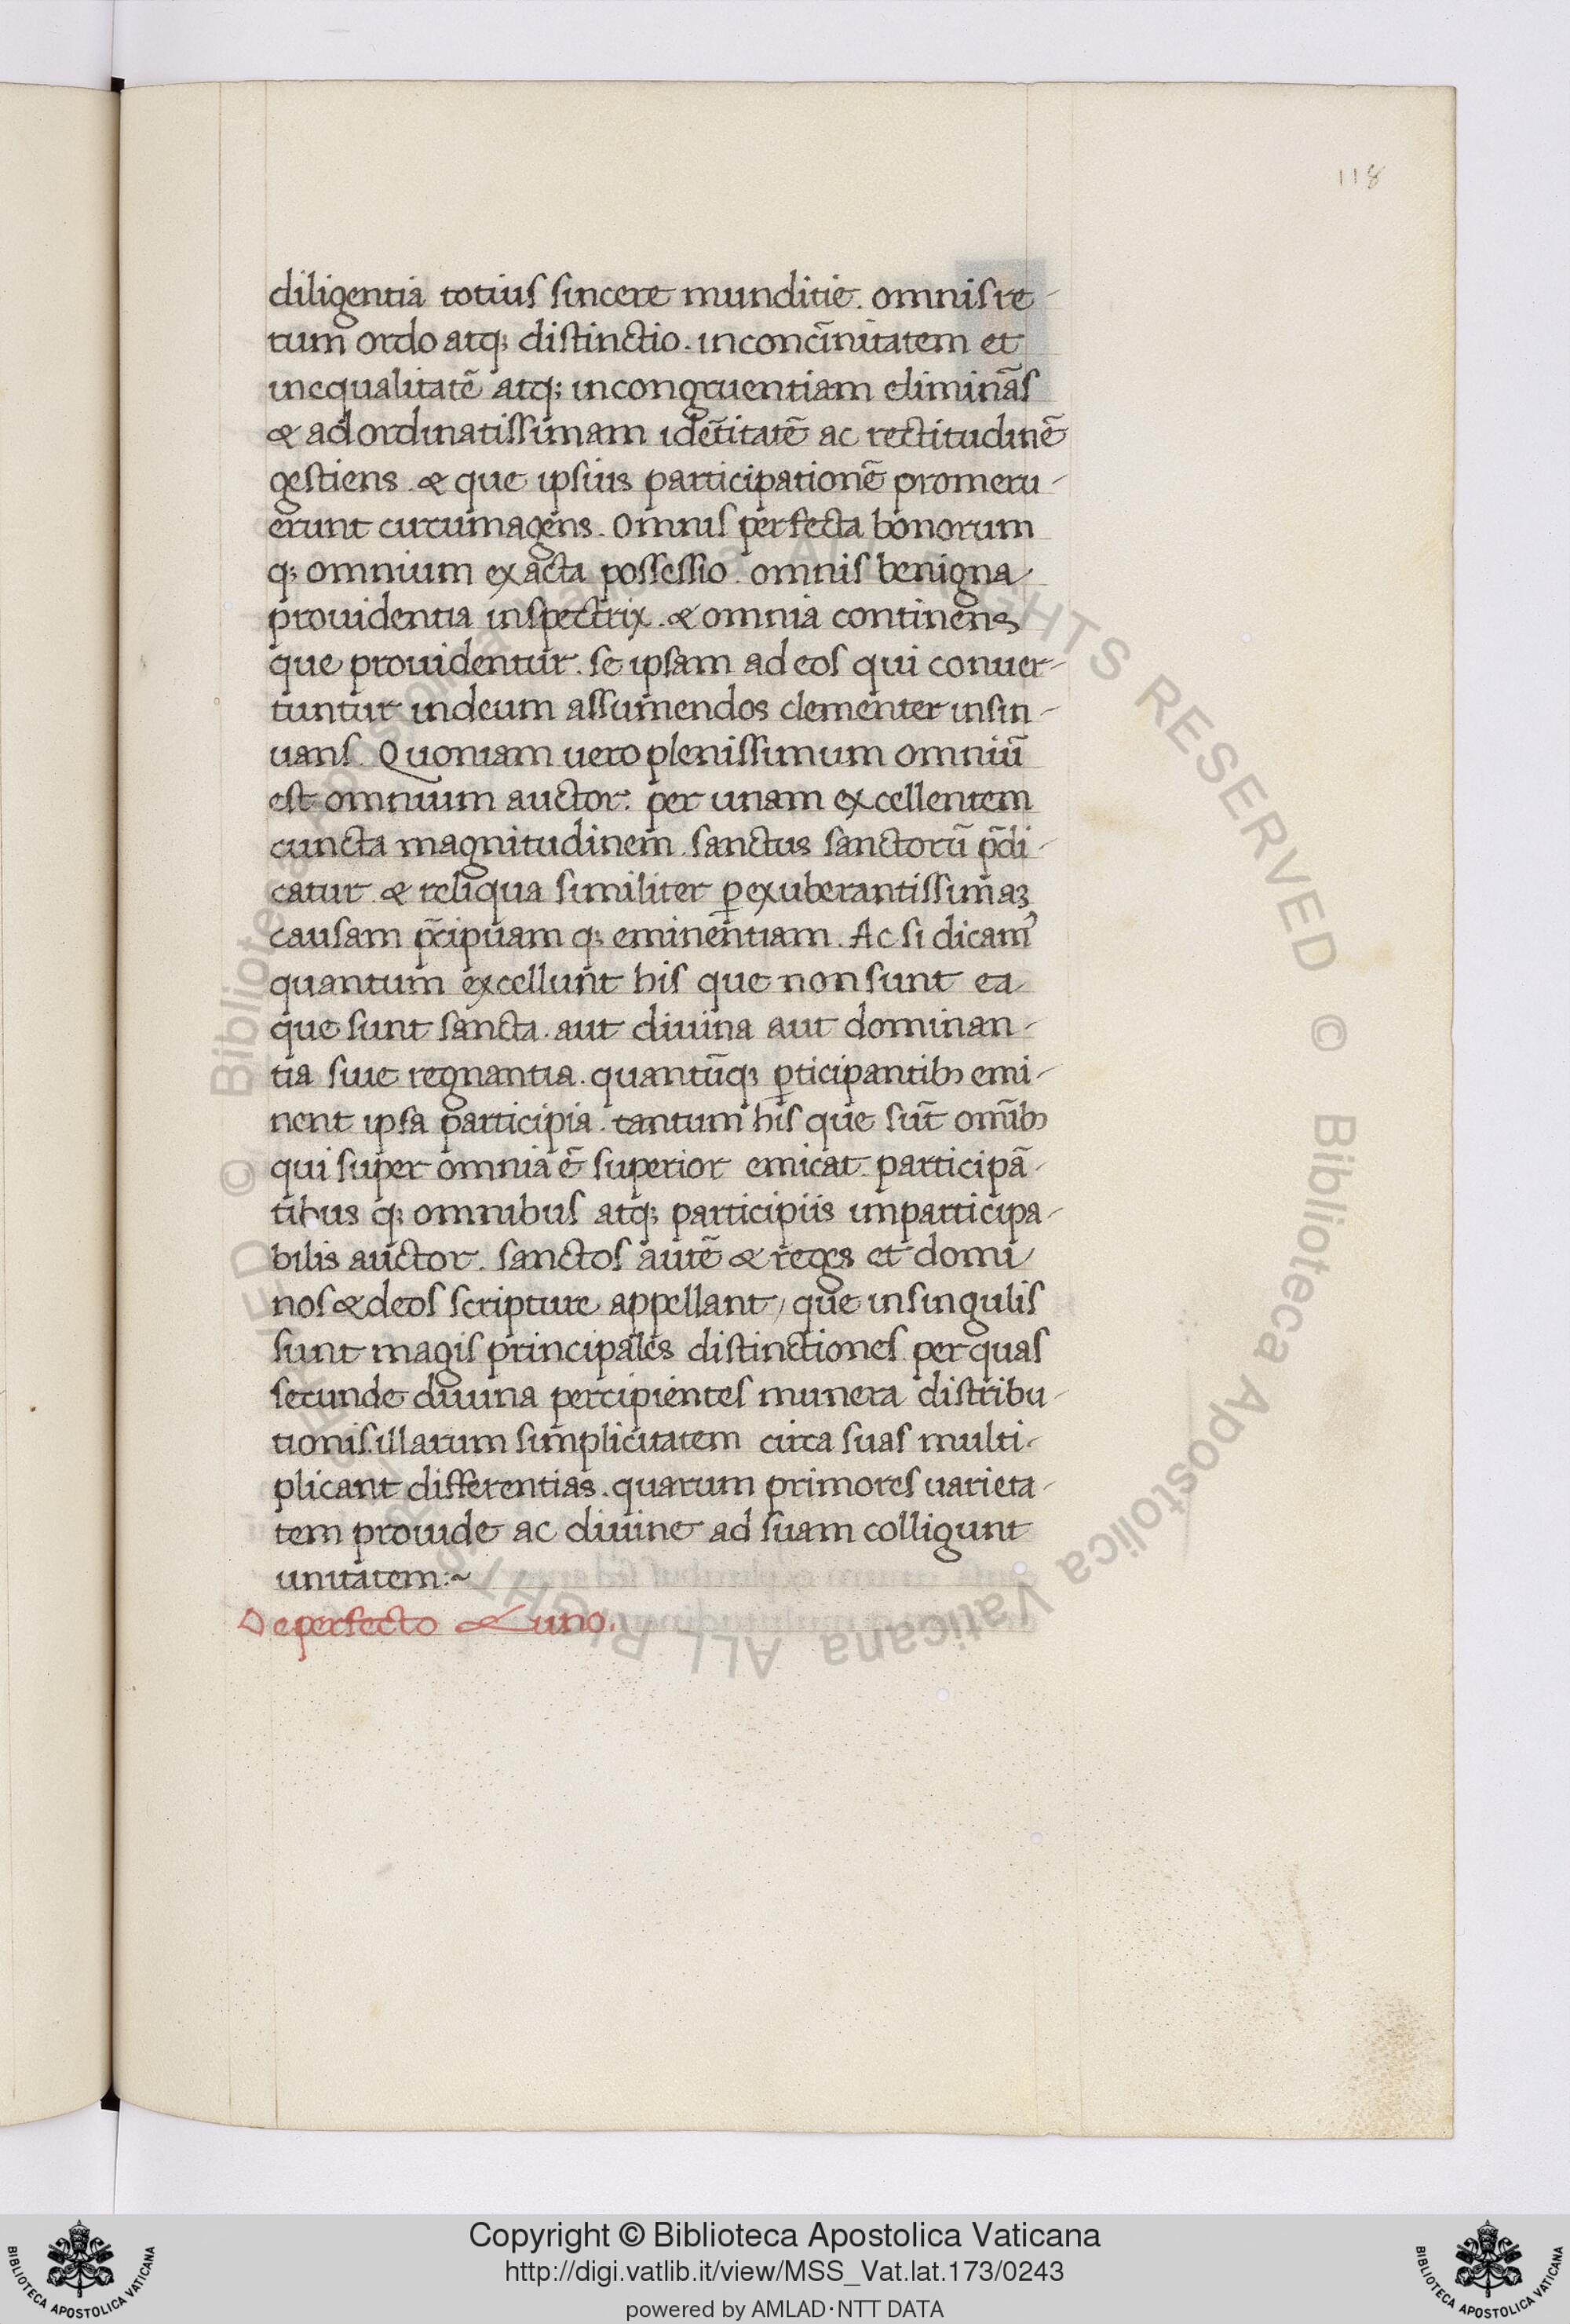 118
diligentia totius sincere munditie. omnis re-
rum ordo atq; distinctio. inconcĩnitatem et
inequalitatẽ atq; incongruentiam eliminãs
& ad ordinatissimam idẽtitatẽ ac rectitudinẽ
gestiens. & que ipsius participationẽ promeru-
erunt circumagens. Omnis perfecta bonorum
q; omnium exacta possessio. omnis benigna
prouidentia inspectrix. & omnia continens
que prouidentur. se ipsam ad eos qui conuer-
tuntur in deum assumendos clementer insin-
uans. Quoniam uero plenissimum omniũ
est omnium auctor: per unam excellentem
cuncta magnitudinem. sanctus sanctorũ p̃di-
catur. & reliqua similiter ꝑ exuberantissimaꝫ
causam p̃cipuam q; eminentiam. Ac si dicam᾽
quantum excellunt his que non sunt ea
que sunt sancta. aut diuina aut dominan-
tia siue regnantia. quantũqꝫ ꝑticipantibꝫ emi-
nent ipsa participia. tantum his que sũt omĩbꝫ
qui super omnia ẽ superior emicat. participã-
tibus q; omnibus atq; participiis imparticipa-
bilis auctor. sanctos autẽ & reges et domi
nos & deos scripture appellant, que in singulis
sunt magis principales distinctiones. per quas
secunde diuina percipientes munera distribu-
tionis. illarum simplicitatem circa suas multi-
plicant differentias. quarum primores uarieta-
tem prouide ac diuine ad suam colligunt
unitatem:~
De perfecto & uno.
© Biblioteca Apostolica Vaticana ALL RIGHTS RESERVED
© Biblioteca Apostolica Vaticana ALL RIGHTS RESERVED
Copyright © Biblioteca Apostolica Vaticana
http://digi.vatlib.it/view/MSS_Vat.lat.173/0243
powered by AMLAD·NTT DATA
BIBLIOTECA APOSTOLICA VATICANA
BIBLIOTECA APOSTOLICA VATICANA